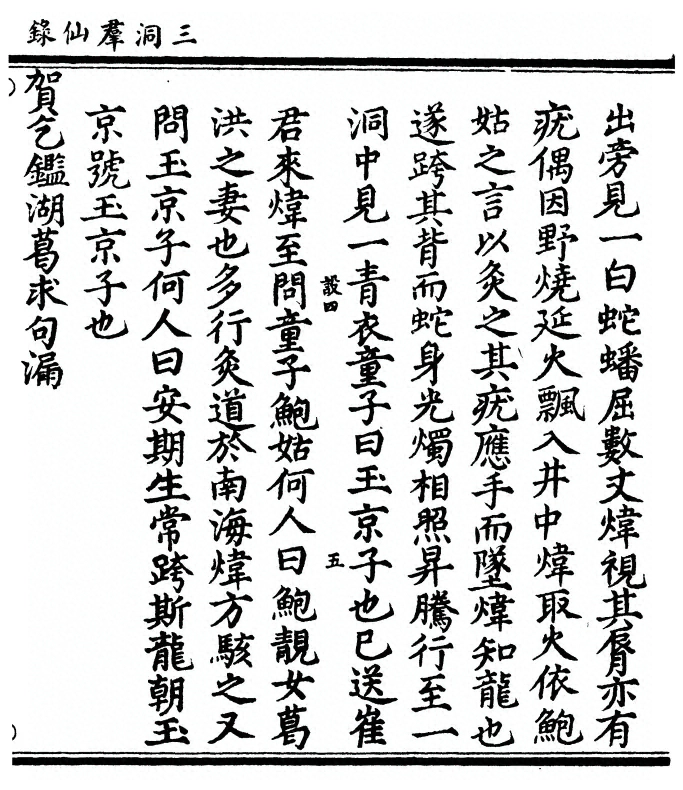 三洞羣仙錄
出旁見一白蛇蟠屈數丈煒視其脣亦有
疣偶因野燒延火飄入井中煒取火依鮑
姑之言以灸之其疣應手而墜煒知龍也
遂跨其背而蛇身光燭相照昇騰行至一
洞中見一青衣童子曰玉京子也已送崔
設四
五
君來煒至問童子鮑姑何人曰鮑靚女葛
洪之妻也多行灸道於南海煒方駭之又
問玉京子何人曰安期生常跨斯龍朝玉
京號玉京子也
賀乞鑑湖葛求句漏